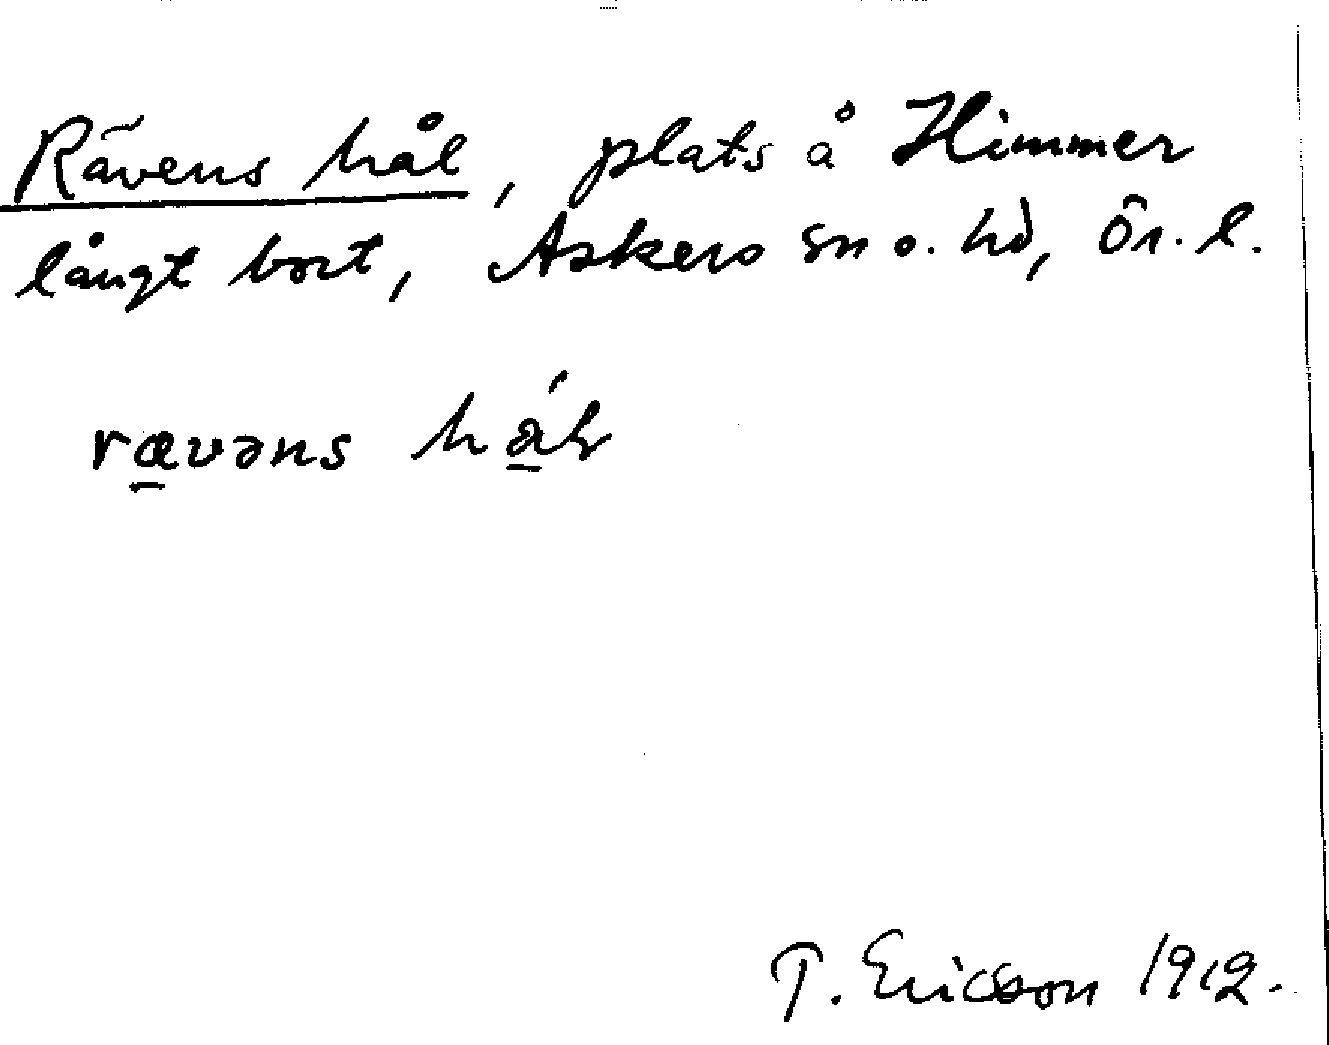 Rävens hål, plats å Himmer
långt bort, Askers sn o. hd, Ör. l.
rævəns hál
T. Ericson 1912.